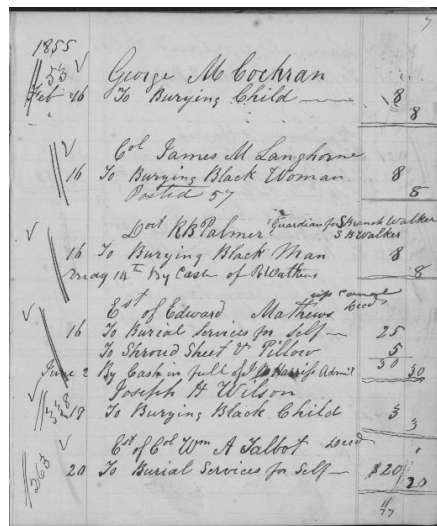 7
1855
53 George M Cochran
Feb 16 To Burying Child 8
8
Col James M Langhorne
16 To Burying Black Woman 8
Posted 57 8
Doct R B Palmer Guardian for Branch Walker
S B Walker
16 To Burying Black Man 8
May 14th By Cash of R Watkins 8
up canal
Est of Edward Mathews Decd
16 To Burial Services for Self 25
To Shroud Sheet & Pillow 5
30
June 2 By Cash in full of Harris Admr 30
Joseph H Wilson
338 19 To Burying Black Child 3
3
Est of Col Wm A Talbot Decd
363 20 To Burial Services for Self $20
20
77